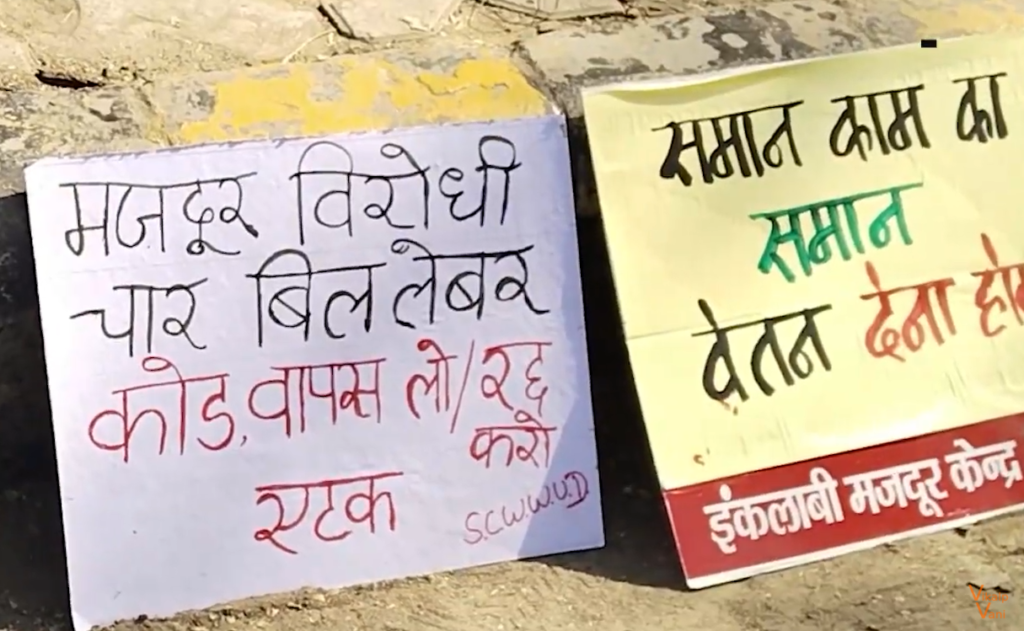 मजदूर विरोधी
चार बिल लेबर
कोड, वापस लो/रद्द
करो
एटक
S.C.W.W.U.D
समान काम का
समान
वेतन देना
इंकलाबी मजदूर केन्द्र